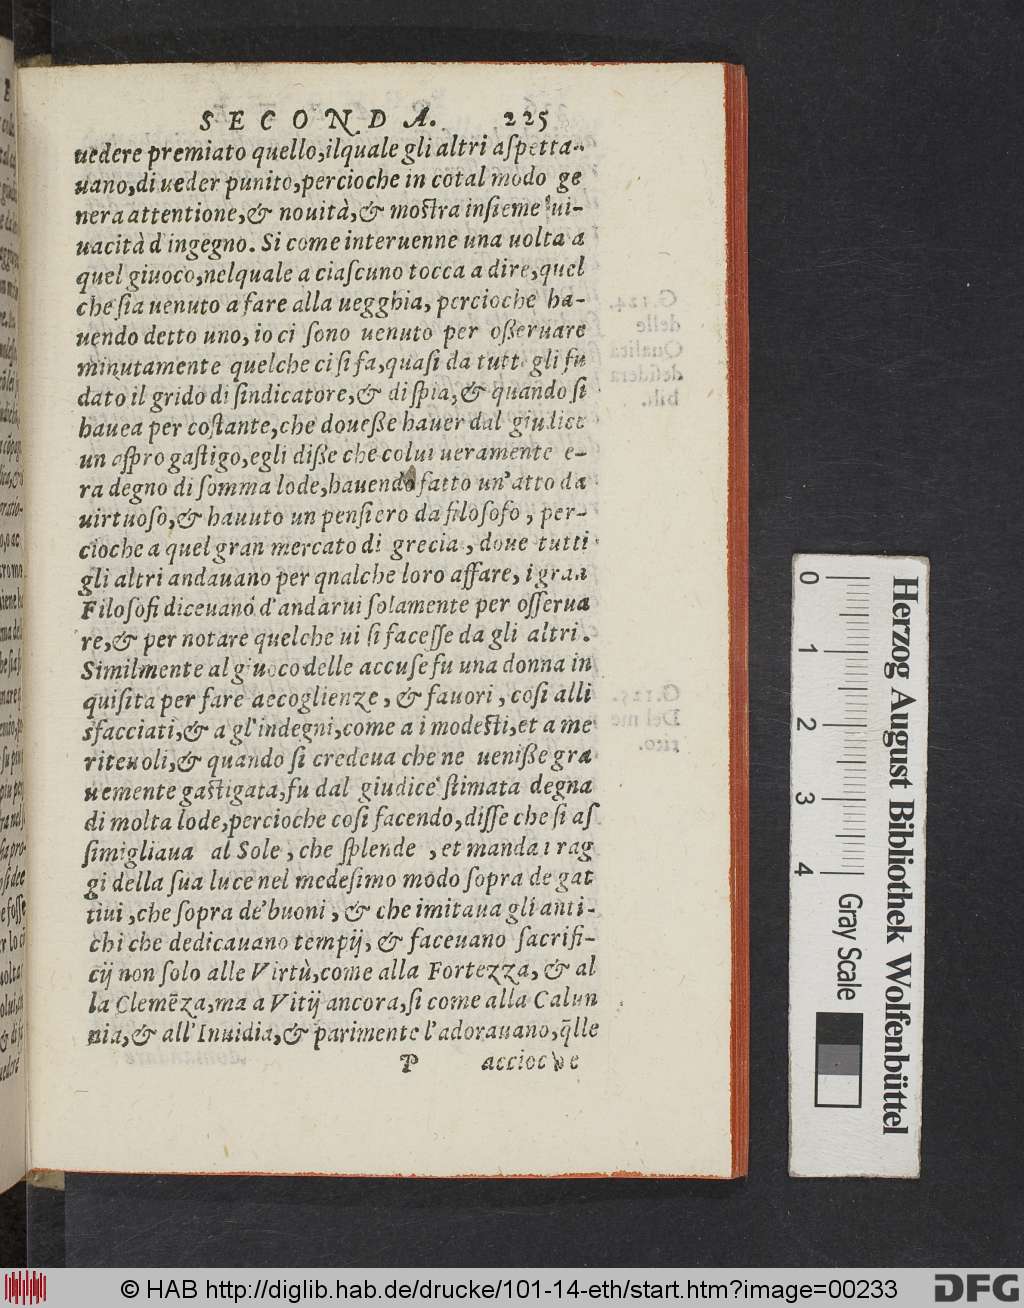 SECONDA. 225
uedere premiato quello,ilquale gli altri aſpetta-
uano,di ueder punito,percioche in cotal modo ge
nera attentione,& nouità,& moſtra inſieme ui-
uacità d'ingegno. Si come interuenne una uolta a
quel giuoco,nelquale a ciaſcuno tocca a dire,quel
che ſia uenuto a fare alla uegghia, percioche ha-
uendo detto uno, io ci ſono uenuto per oßeruare
minutamente quelche ci ſi fa,quaſi da tutti gli fu
dato il grido di ſindicatore,& di ſpia,& quando ſi
hauea per coſtante,che doueße hauer dal giudice
un aſpro gaſtigo,egli diße che colui ueramente e-
ra degno di ſomma lode,hauendo fatto un'atto da
uirtuoſo,& hauuto un penſiero da filoſofo, per-
cioche a quel gran mercato di grecia, doue tutti
gli altri andauano per qnalche loro affare, i gran
Filoſofi diceuano d'andarui ſolamente per oſſerua
re,& per notare quelche ui ſi faceſſe da gli altri.
Similmente al giuoco delle accuſe fu una donna in
quiſita per fare aecoglienze, & fauori, coſi alli
sfacciati,& a gl'indegni,come a i modeſti,et a me
riteuoli,& quando ſi credeua che ne ueniße gra
uemente gaſtigata,fu dal giudice ſtimata degna
di molta lode,percioche coſi facendo,diſſe che ſi aſ
ſimigliaua al Sole, che ſplende , et manda i rag
gi della ſua luce nel medeſimo modo ſopra de gat
tiui ,che ſopra de' buoni, & che imitaua gli anti-
chi che dedicauano tempij, & faceuano ſacrifi-
cij non ſolo alle Virtù,come alla Fortezza, & al
la Clemẽza,ma a Vitij ancora,ſi come alla Calun
nia,& all'Inuidia,& parimente l'adorauano,q̃lle
P accioche
0 1 2 3 4
Herzog August Bibliothek Wolfenbüttel
Gray Scale
© HAB http://diglib.hab.de/drucke/101-14-eth/start.htm?image=00233
DFG